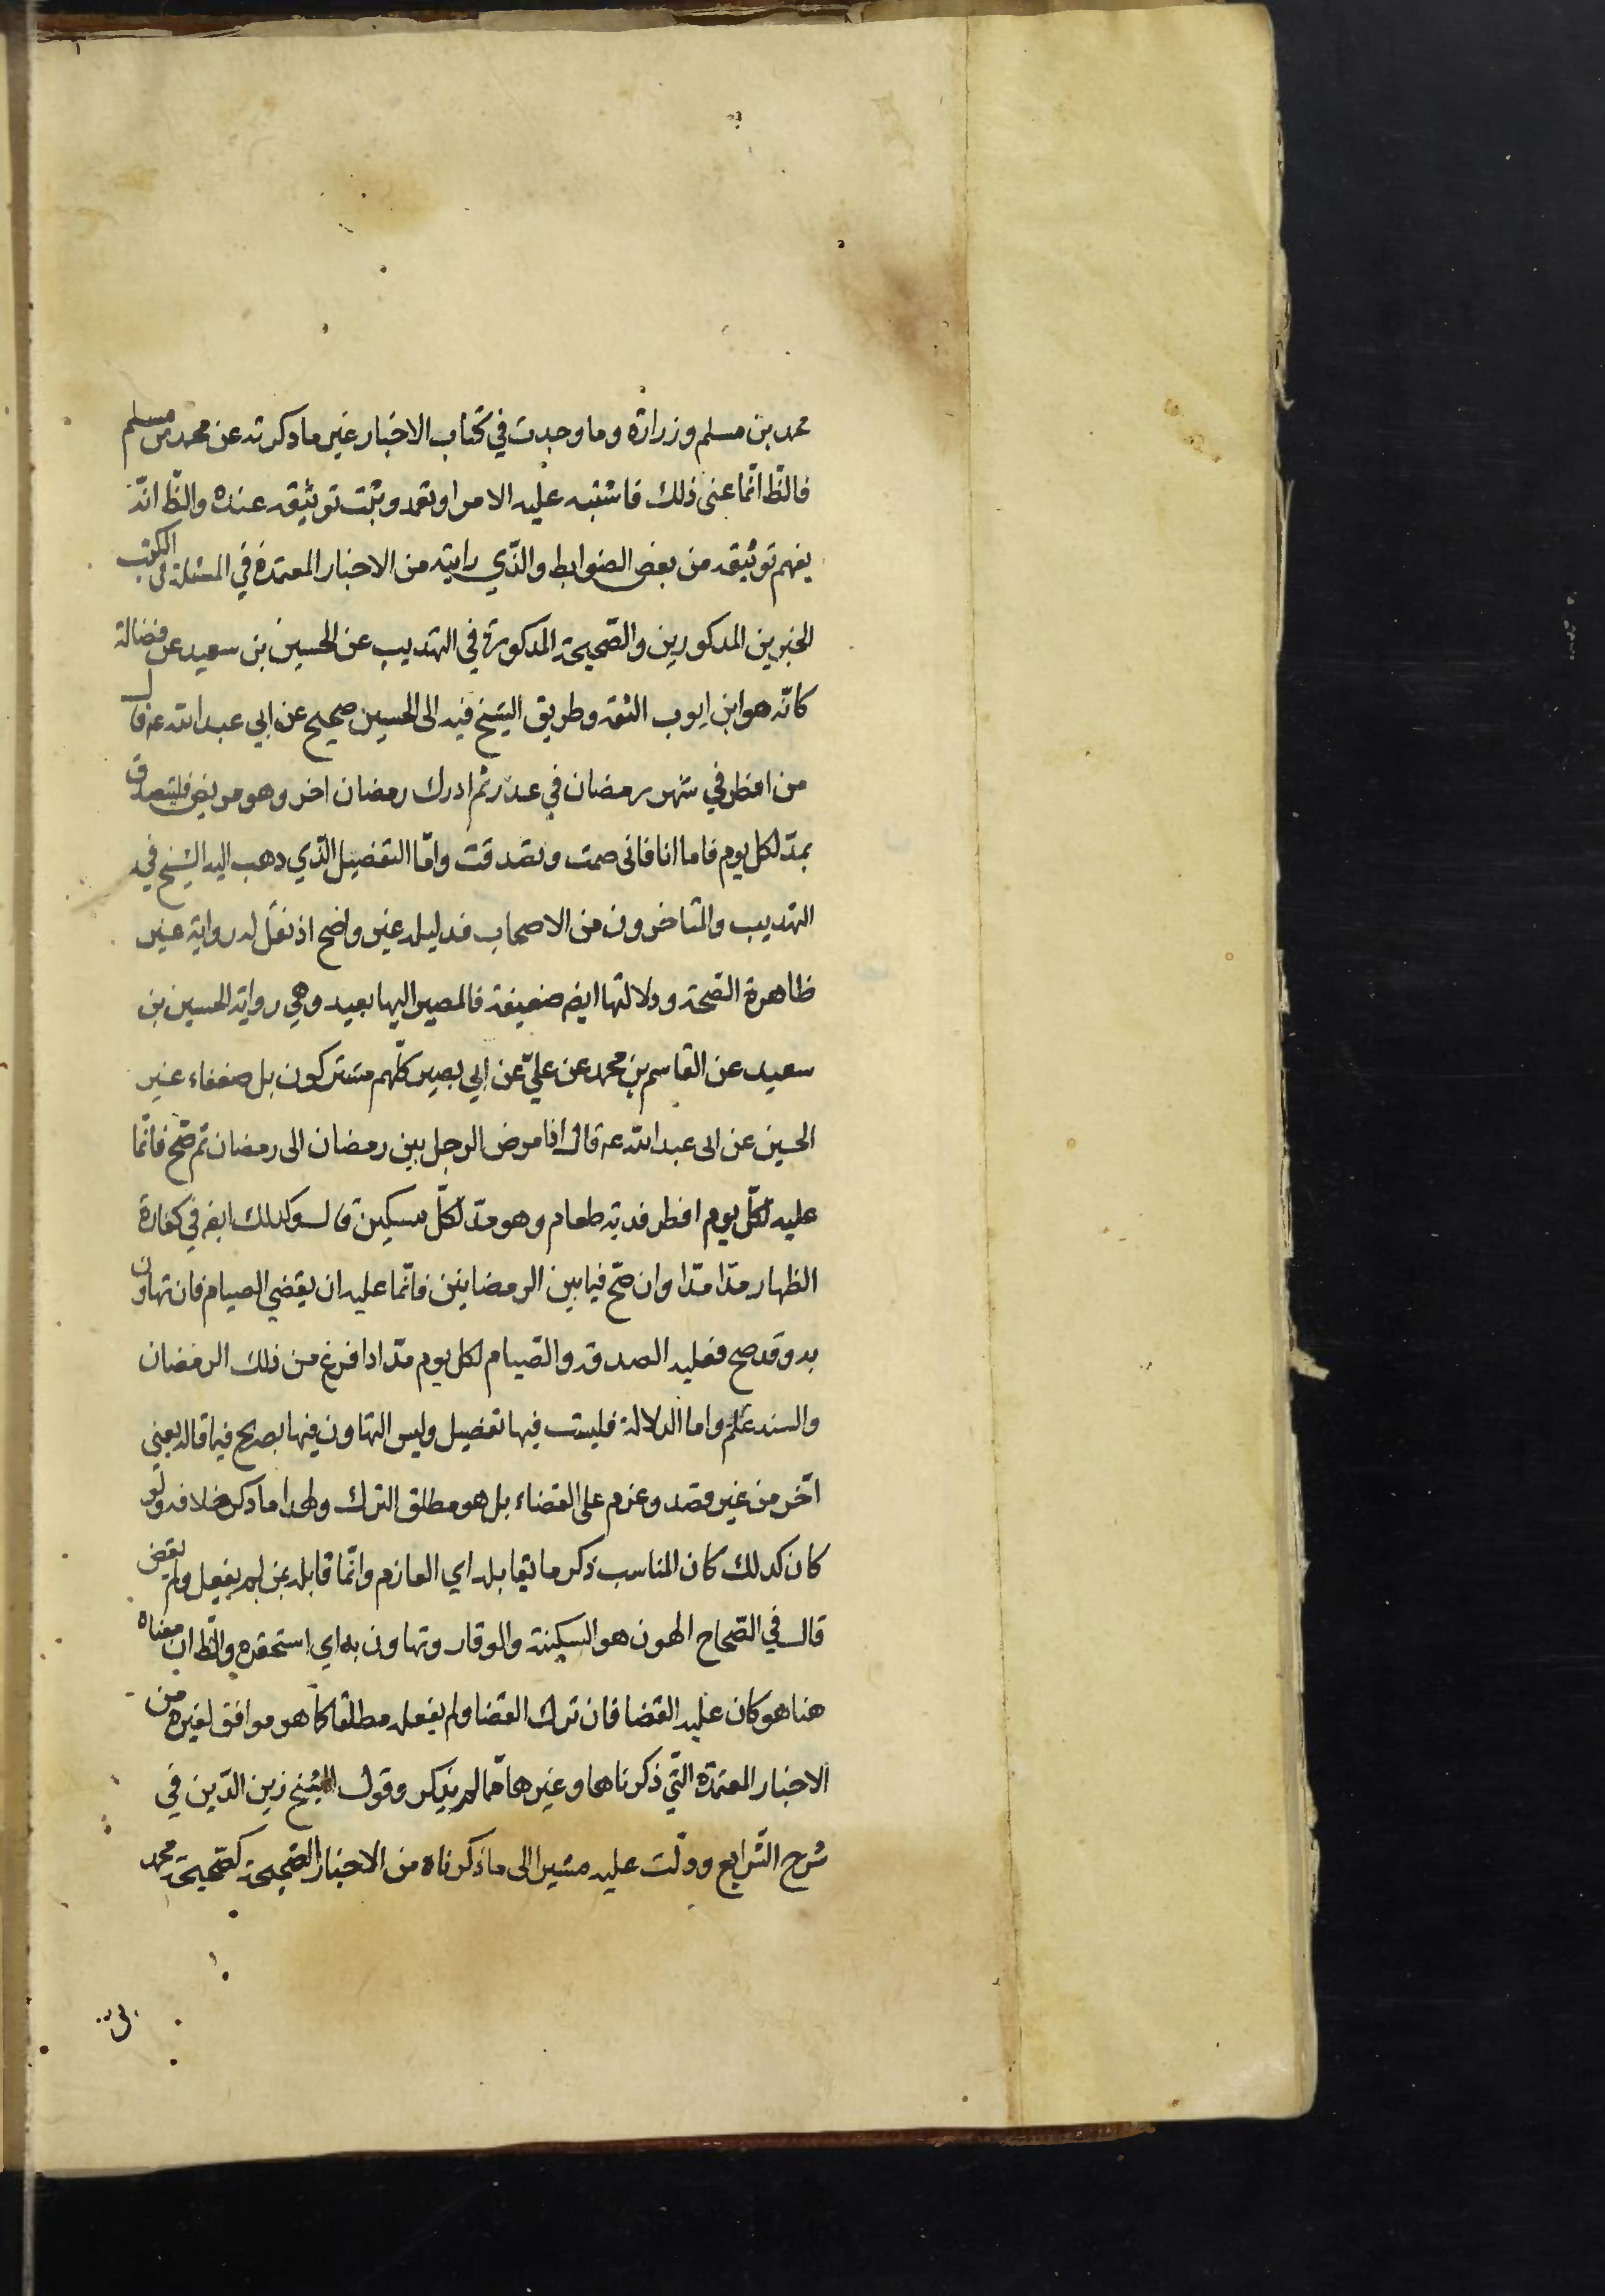 محمد بن مسلم وزرارة وما وجدت في كتاب الاخبار غير ما ذكرته عن محمد بن مسلم
فالظ انما عنى ذلك فاشتبه عليه الامر او تعمد وثبت توثيقه عنده والظ انه
يفهم توثيقه من بعض الضوابط والذي رايته من الاخبار المعتمدة في المسئلة في الكتب
الخبرين المذكورين والصحيحة المذكورة في التهذيب عن الحسين بن سعيد عن فضالة
كانه هو ابن ايوب الثقة وطريق الشيخ فيه الى الحسين صحيح عن ابي عبد الله عه قال
من افطر في شهر رمضان في عذر ثم ادرك رمضان اخر وهو مريض فليتصدق
بمد لكل يوم فاما انا فانى صمت وتصدقت وامّا التفصيل الذي ذهب اليه الشيخ في
التهذيب والمتاخرون من الاصحاب فدليله غير واضح اذ نقل له رواية غير
ظاهرة الصحة ودلالتها ايض ضعيفة فالمصير اليها بعيد وهي رواية الحسين بن
سعيد عن القاسم بن محمد عن عليّ عن ابي بصير كلّهم مشتركون بل ضعفاء غير
الحسين عن ابى عبد الله عه قال اذا مرض الرجل بين رمضان الى رمضان ثم صّح فانّما
عليه لكلّ يوم افطر فدية طعام وهو مدّ لكلّ مسكين قال وكذلك ايض في كفارة
الظهار مدّا مدّا وان صّح فيما بين الرمضانين فانّما عليه ان يقضي الصيام فان تهاون
به وقد صح فعليه الصدقة والصيام لكل يوم مدّ اذا فرغ من ذلك الرمضان
والسند علم واما الدلالة فليست فيها تفصيل وليس التهاون فيها بصريح فيما قاله يعني
اخّر من غير قصد وعزم على القضاء بل هو مطلق الترك ولهذا ما ذكر خلافه ولو
كان كذلك كان المناسب ذكر ما يقابله اي العازم وانّما قابله بمن لم يفعل ولم يقض
قال في الصّحاح الهون هو السكينة والوقار وتهاون به اي استحقره والظ ان معناه
هنا هو كان عليه القضا فان ترك القضا ولم يفعله مطلقا كما هو موافق لغيره من
الاخبار المعتمدة التّي ذكرناها وغيرها ممّا لم يذكر وقول الشيخ زين الدّين في
شرح الشرايع ودلّت عليه مشيرا الى ما ذكرناه من الاخبار الصّحيحة كصّحيحة محمد